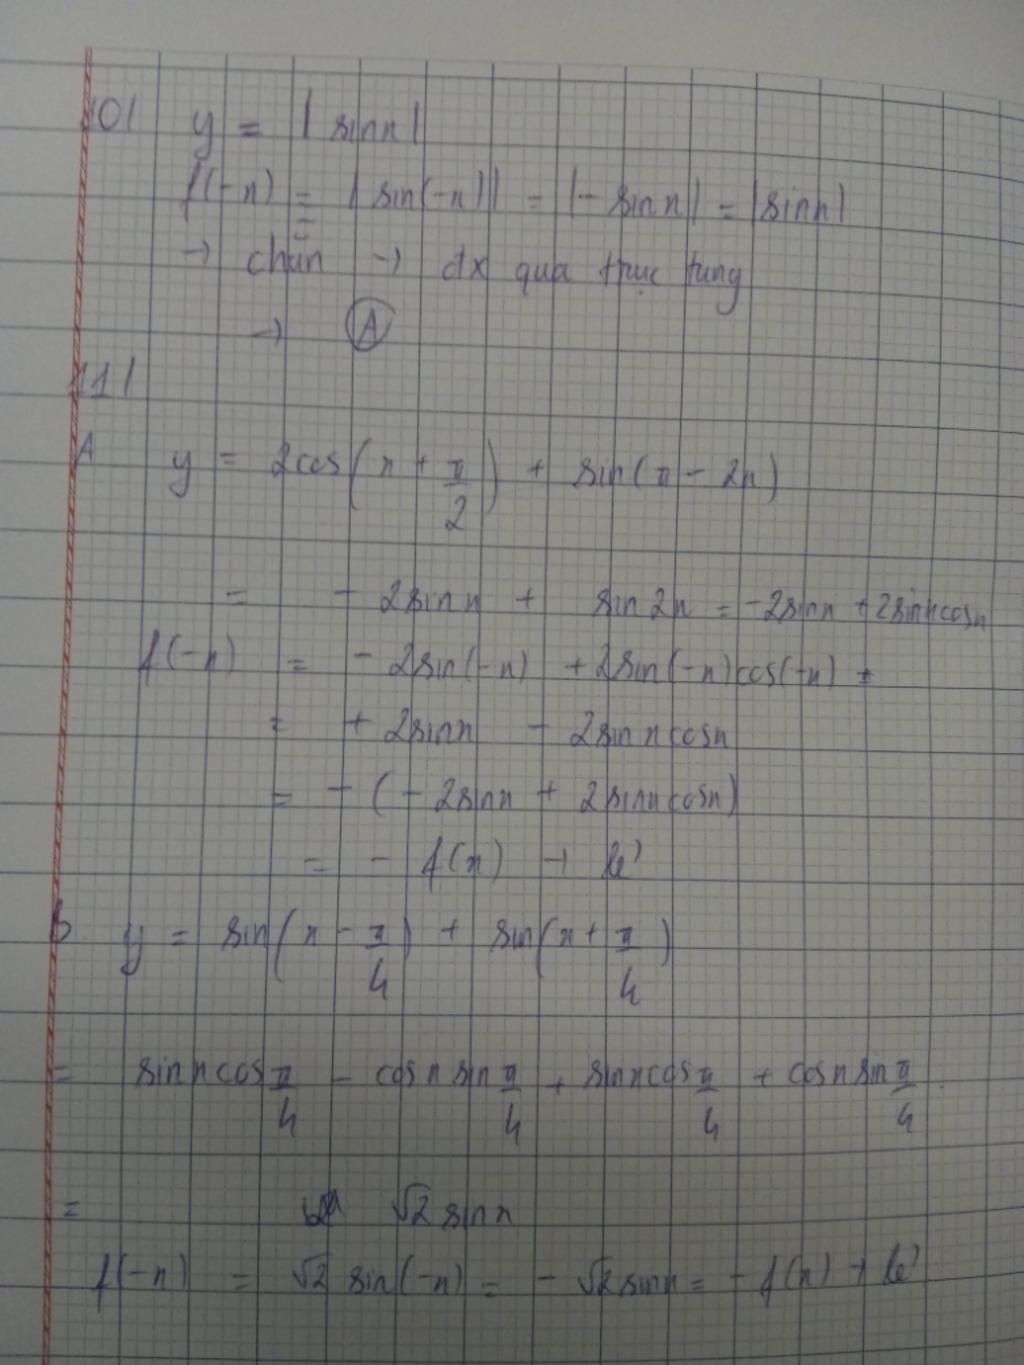 10/ y = |sinx|
f(-x) = |sin(-x)| = |-sinx| = |sinx|
→ chẵn → đx qua trục tung
→ Ⓐ
11/
A y = 2cos(x + π/2) + sin(π - 2x)
= - 2sinx + sin2x = -2sinx + 2sinxcosx
f(-x) = - 2sin(-x) + 2sin(-x)cos(-x) =
= + 2sinx - 2sinxcosx
= - (- 2sinx + 2sinxcosx)
= - f(x) → lẻ
B. y = sin(x - π/4) + sin(x + π/4)
= sinxcosπ/4 - cosxsinπ/4 + sinxcosπ/4 + cosxsinπ/4
= √2 sinx
f(-x) = √2 sin(-x) = - √2sinx = - f(x) → lẻ